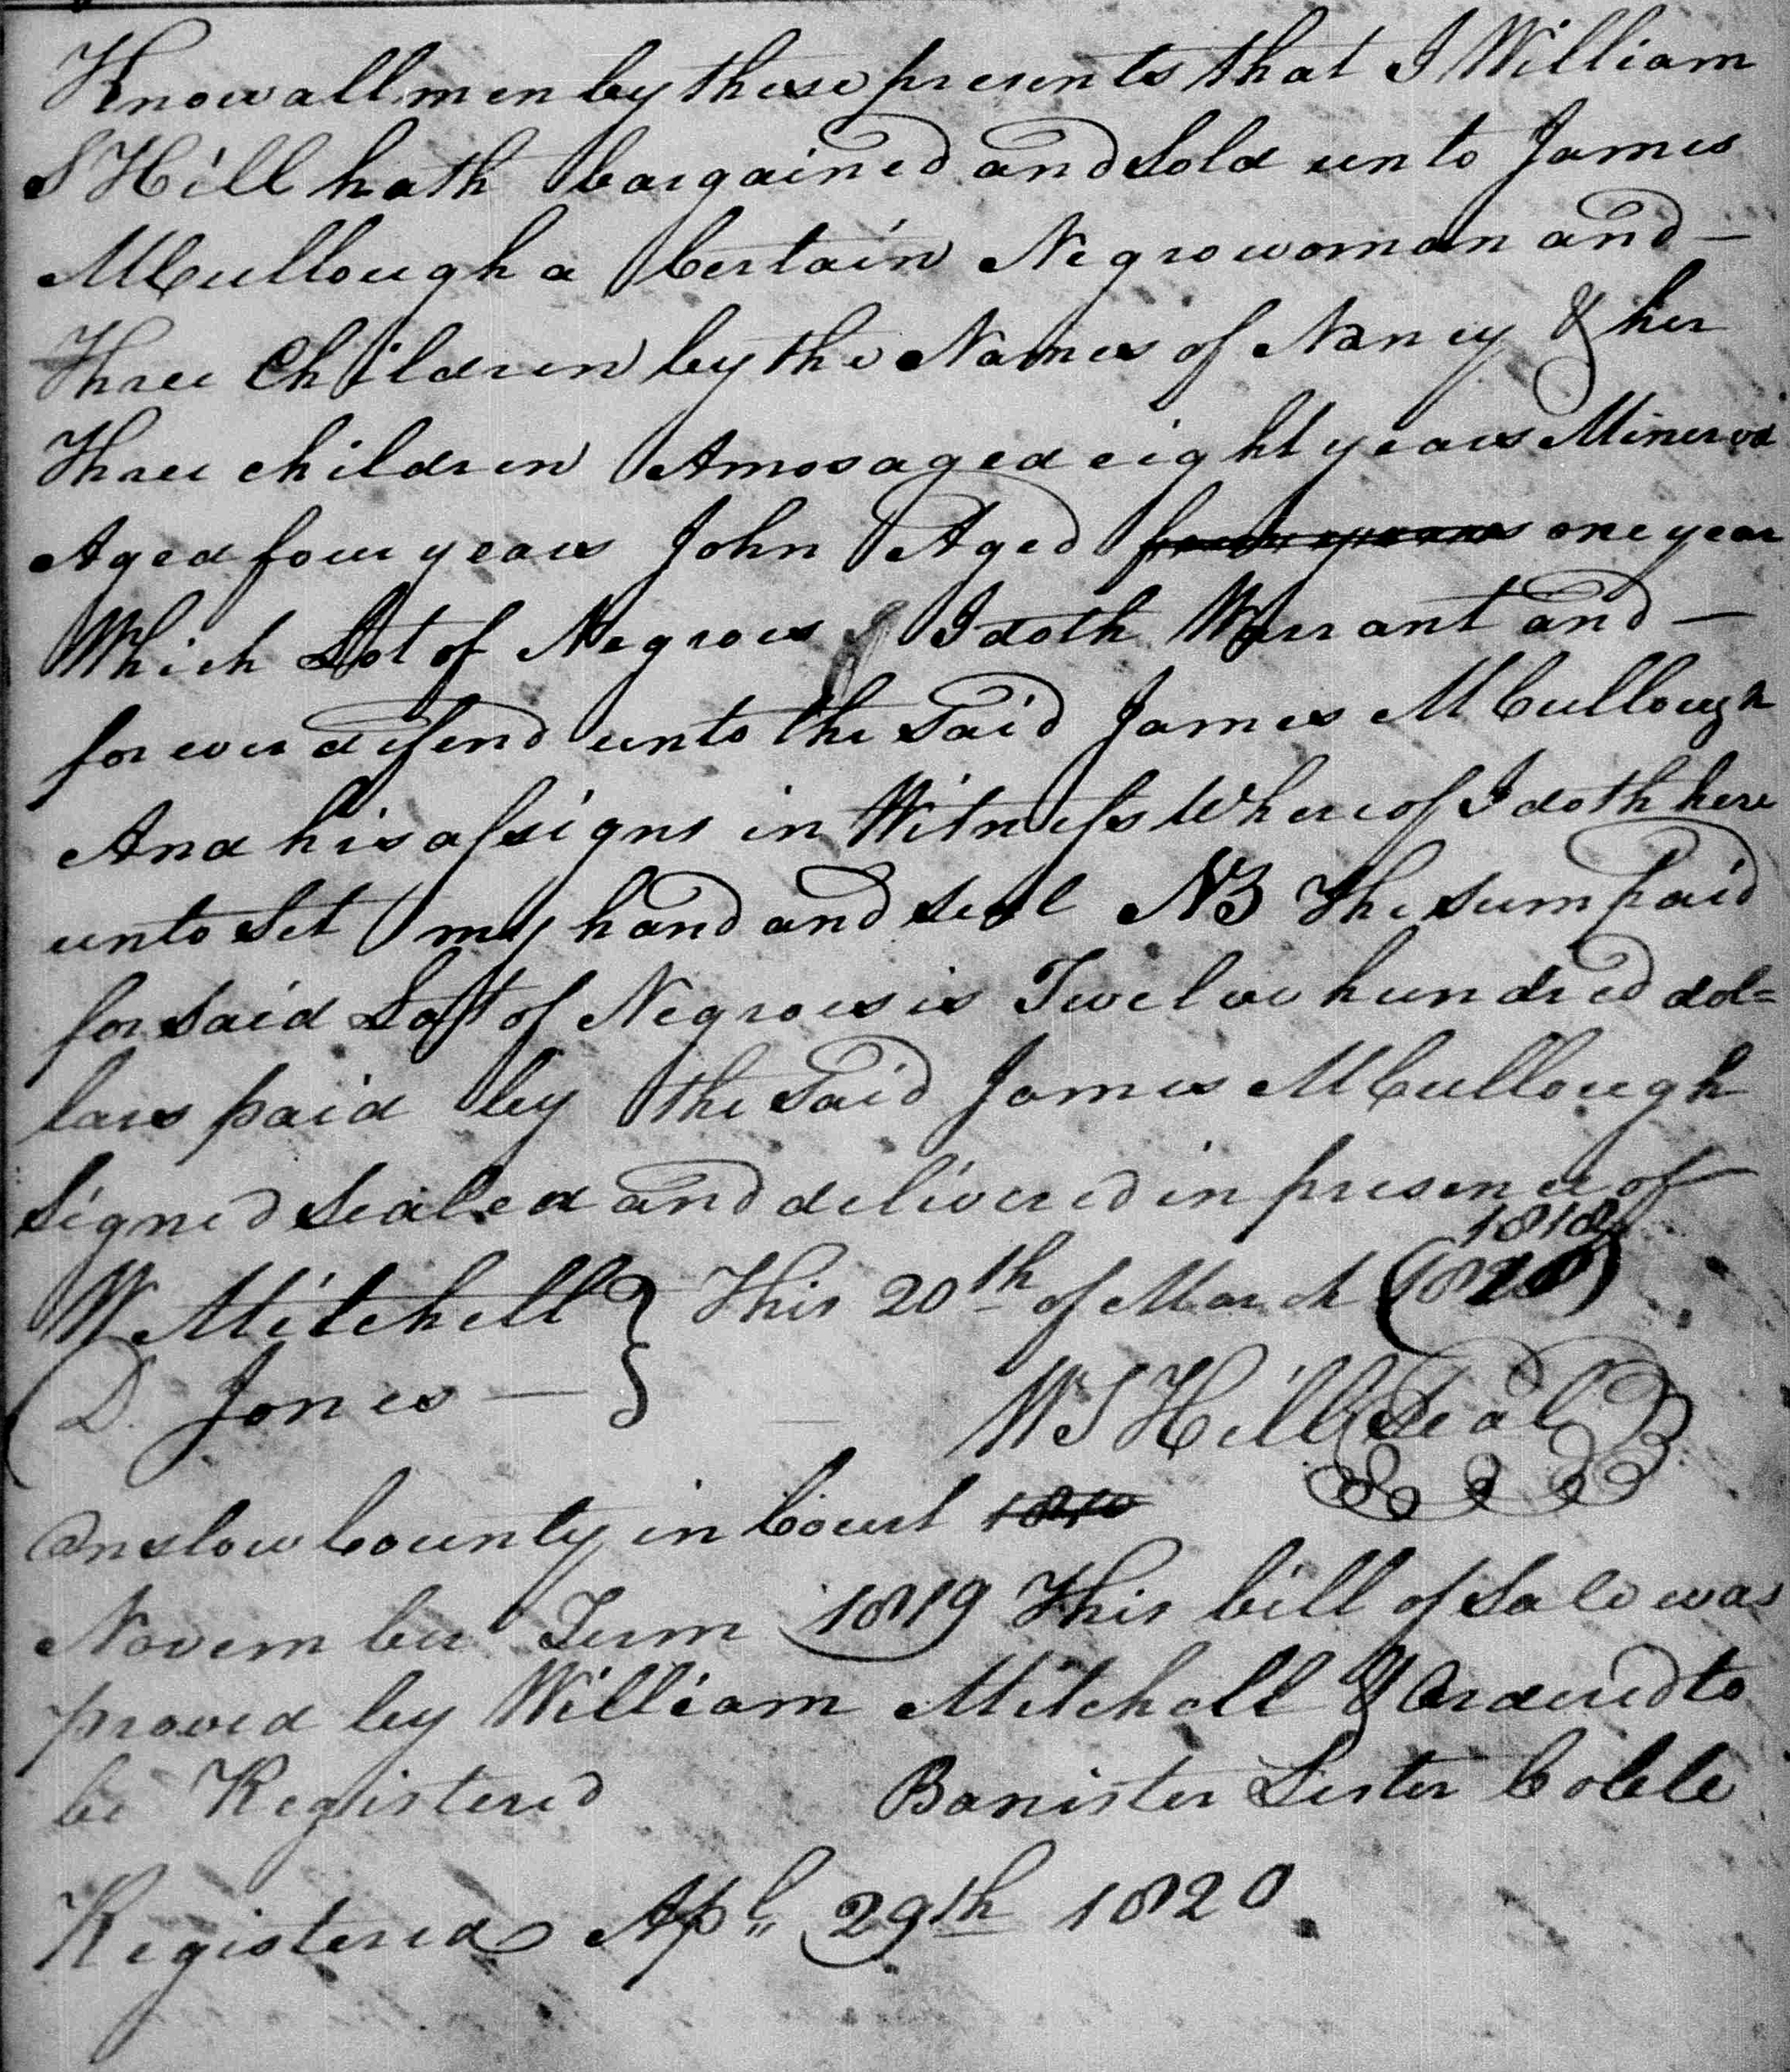 Know all men by these presents that I William
S Hill hath bargained and Sold unto James
McCullough a Certain Negro woman and —
Three Children by the Names of Nancy & her
Three children Amos aged eight years Minerva
Aged four years John Aged four years one year
Which Lot of Negroes I doth Warrant and —
forever defend unto the Said James McCullough
And his assigns in Witness Whereof I doth here
unto Set my hand and seal NB The sum paid
for said Lott of Negroes is Twelve hundred dol=
lars paid by the Said James McCullough
Signed Sealed and delivered in presence of
1818
W Mitchell } This 20th of March (1820)
D. Jones —
W S Hill (Seal)
Onslow County in Court 1810
November Term 1819 This bill of Sale was
proved by William Mitchell & Ordered to
be Registered Banister Lester Colele
Registered Apl. 29th 1820